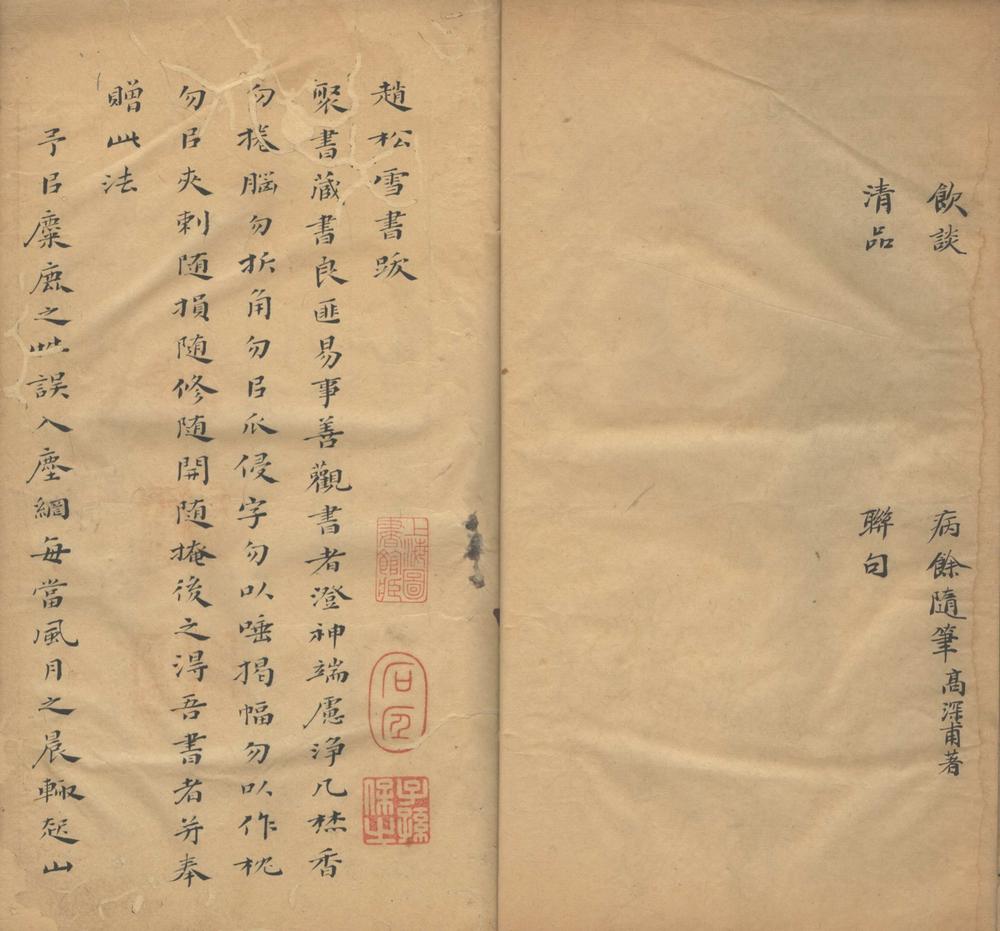 飲談 病餘隨筆高深甫著
清品 聯句
趙松雪書跋
聚書藏書良匪易事善觀書者澄神端慮淨几焚香
勿捲腦勿折角勿㠯爪侵字勿以唾揭幅勿以作枕
勿㠯夾刺随損随修随開随掩後之淂吾書者并奉
贈此法
予㠯麋鹿之誤入塵網每當風月之晨輙起山
上海圖書館藏
子孫保之